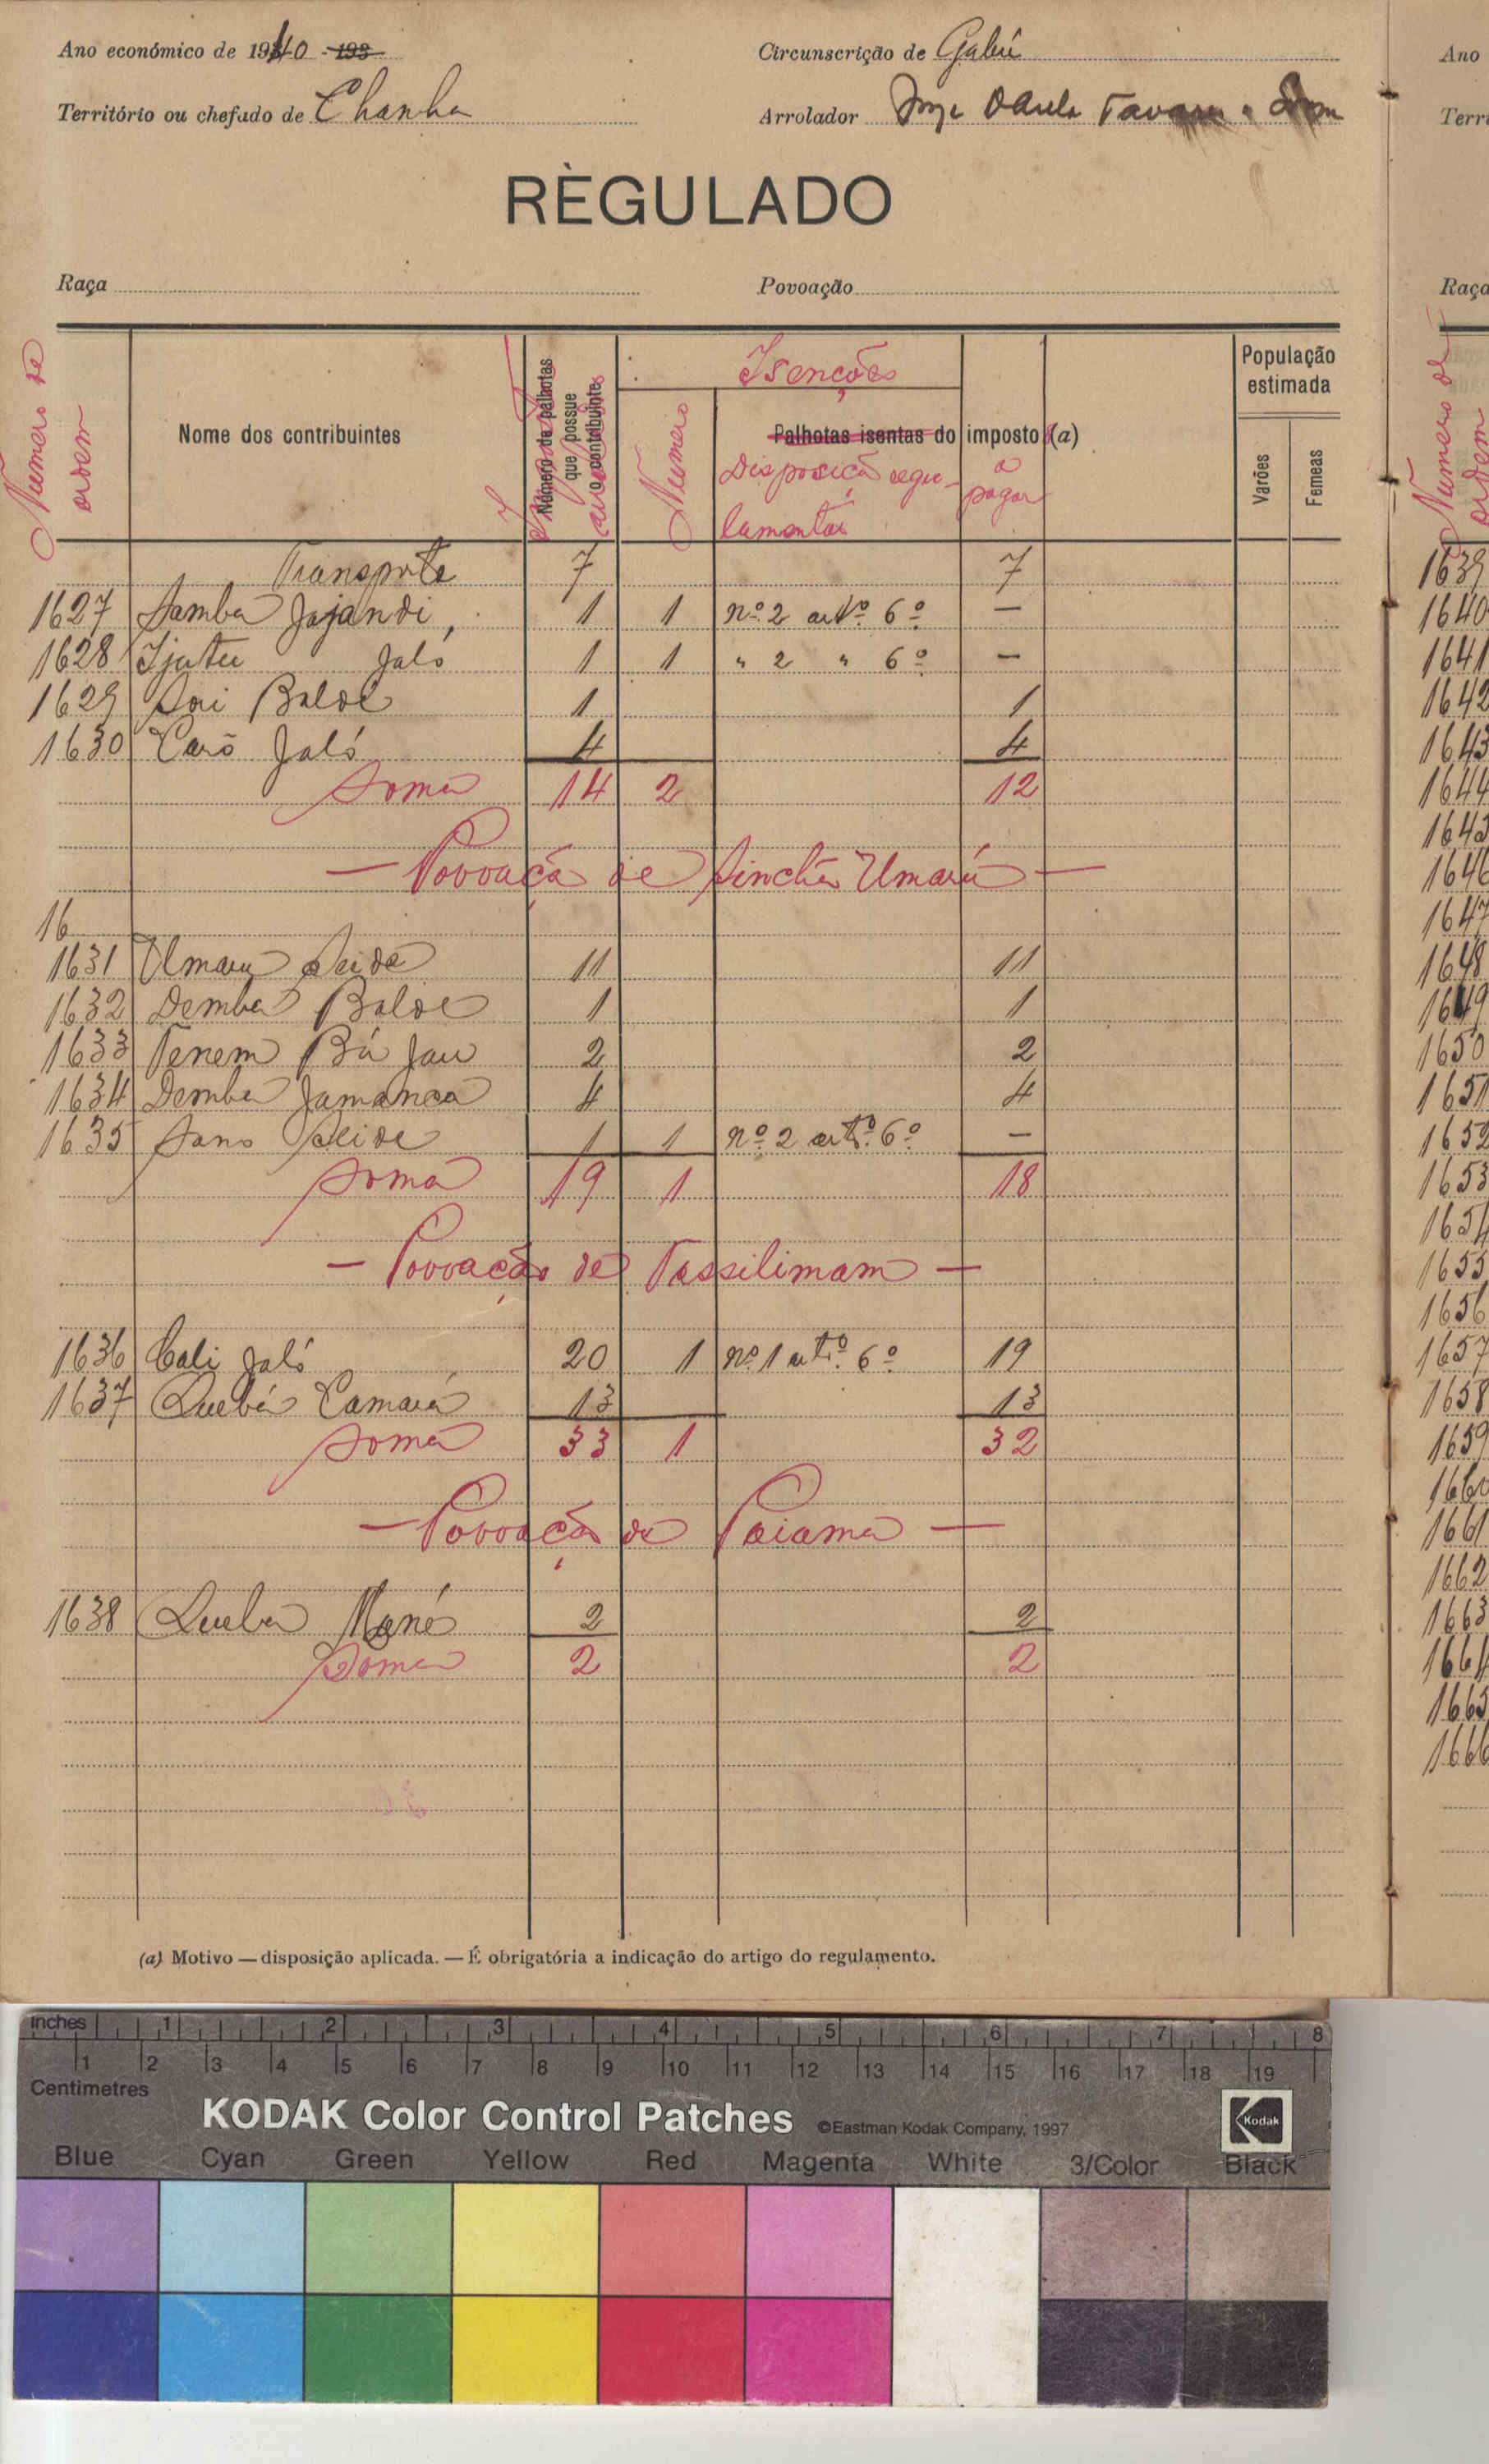 Ano económico de 1940 - 193
Circunscrição de Gabú
Território ou chefado de Chanha
Arrolador Jorge Paula Tavares
RÈGULADO
Raça
Povoação
Numero de ordem
Nome dos contribuintes
Número de palhotas que possue o contribuinte
Isenções
Numero
Palhotas isentas do imposto (a)
Disposição regulamentar
a pagar
População estimada
Varões
Femeas
Transporte 7 7
1627 Samba Jajandi, 1 1 nº 2 artº 6º —
1628 Ijatu Jaló 1 1 " 2 " 6º —
1629 Sori Baldé 1 1
1630 Carō Jaló 4 4
Soma 14 2 12
— Povoaçã de Sinchã Umarú —
16
1631 Umaru Seide 11 11
1632 Demba Balde 1 1
1633 Tenem Bú Jau 2 2
1634 Demba Jamanca 4 4
1635 Sano Seide 1 1 nº 2 artº 6º —
Soma 19 1 18
— Povoação de Tassilimam —
1636 Cali Jaló 20 1 nº 1 artº 6º 19
1637 Quebá Camará 13 13
Soma 33 1 32
— Povoação de Paiama —
1638 Queba Mané 2 2
Soma 2 2
(a) Motivo — disposição aplicada. — É obrigatória a indicação do artigo do regulamento.
Ano
Terri
Raça
Numero de ordem
1639
1640
1641
1642
1643
1644
1645
1646
1647
1648
1649
1650
1651
1652
1653
1654
1655
1656
1657
1658
1659
1660
1661
1662
1663
1664
1665
1666
inches 1 2 3 4 5 6 7 8
1 2 3 4 5 6 7 8 9 10 11 12 13 14 15 16 17 18 19
Centimetres
KODAK Color Control Patches ©Eastman Kodak Company, 1997 Kodak
Blue Cyan Green Yellow Red Magenta White 3/Color Black